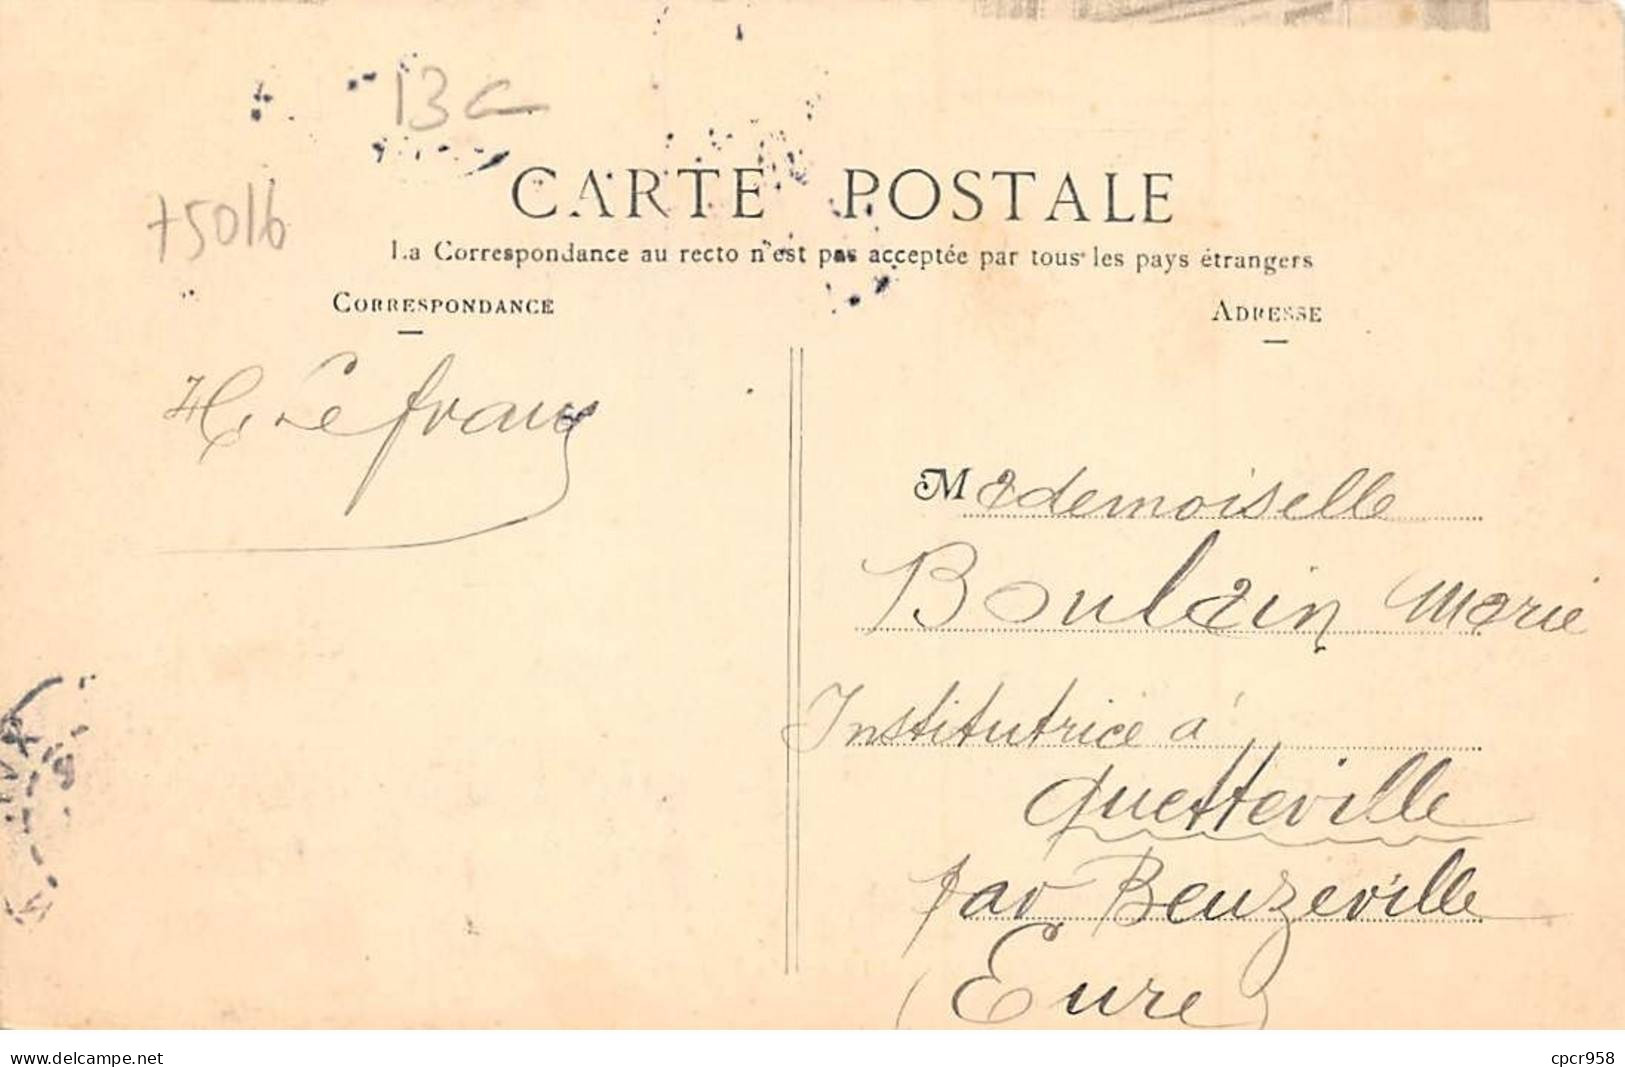 13 c
75016
CARTE POSTALE
La Correspondance au recto n'est pas acceptée par tous les pays étrangers
CORRESPONDANCE
ADRESSE
H. Lefranç
Mademoiselle
Boulain Marie
Institutrice à
Quetteville
par Beuzeville
(Eure)
www.delcampe.net
cpcr958